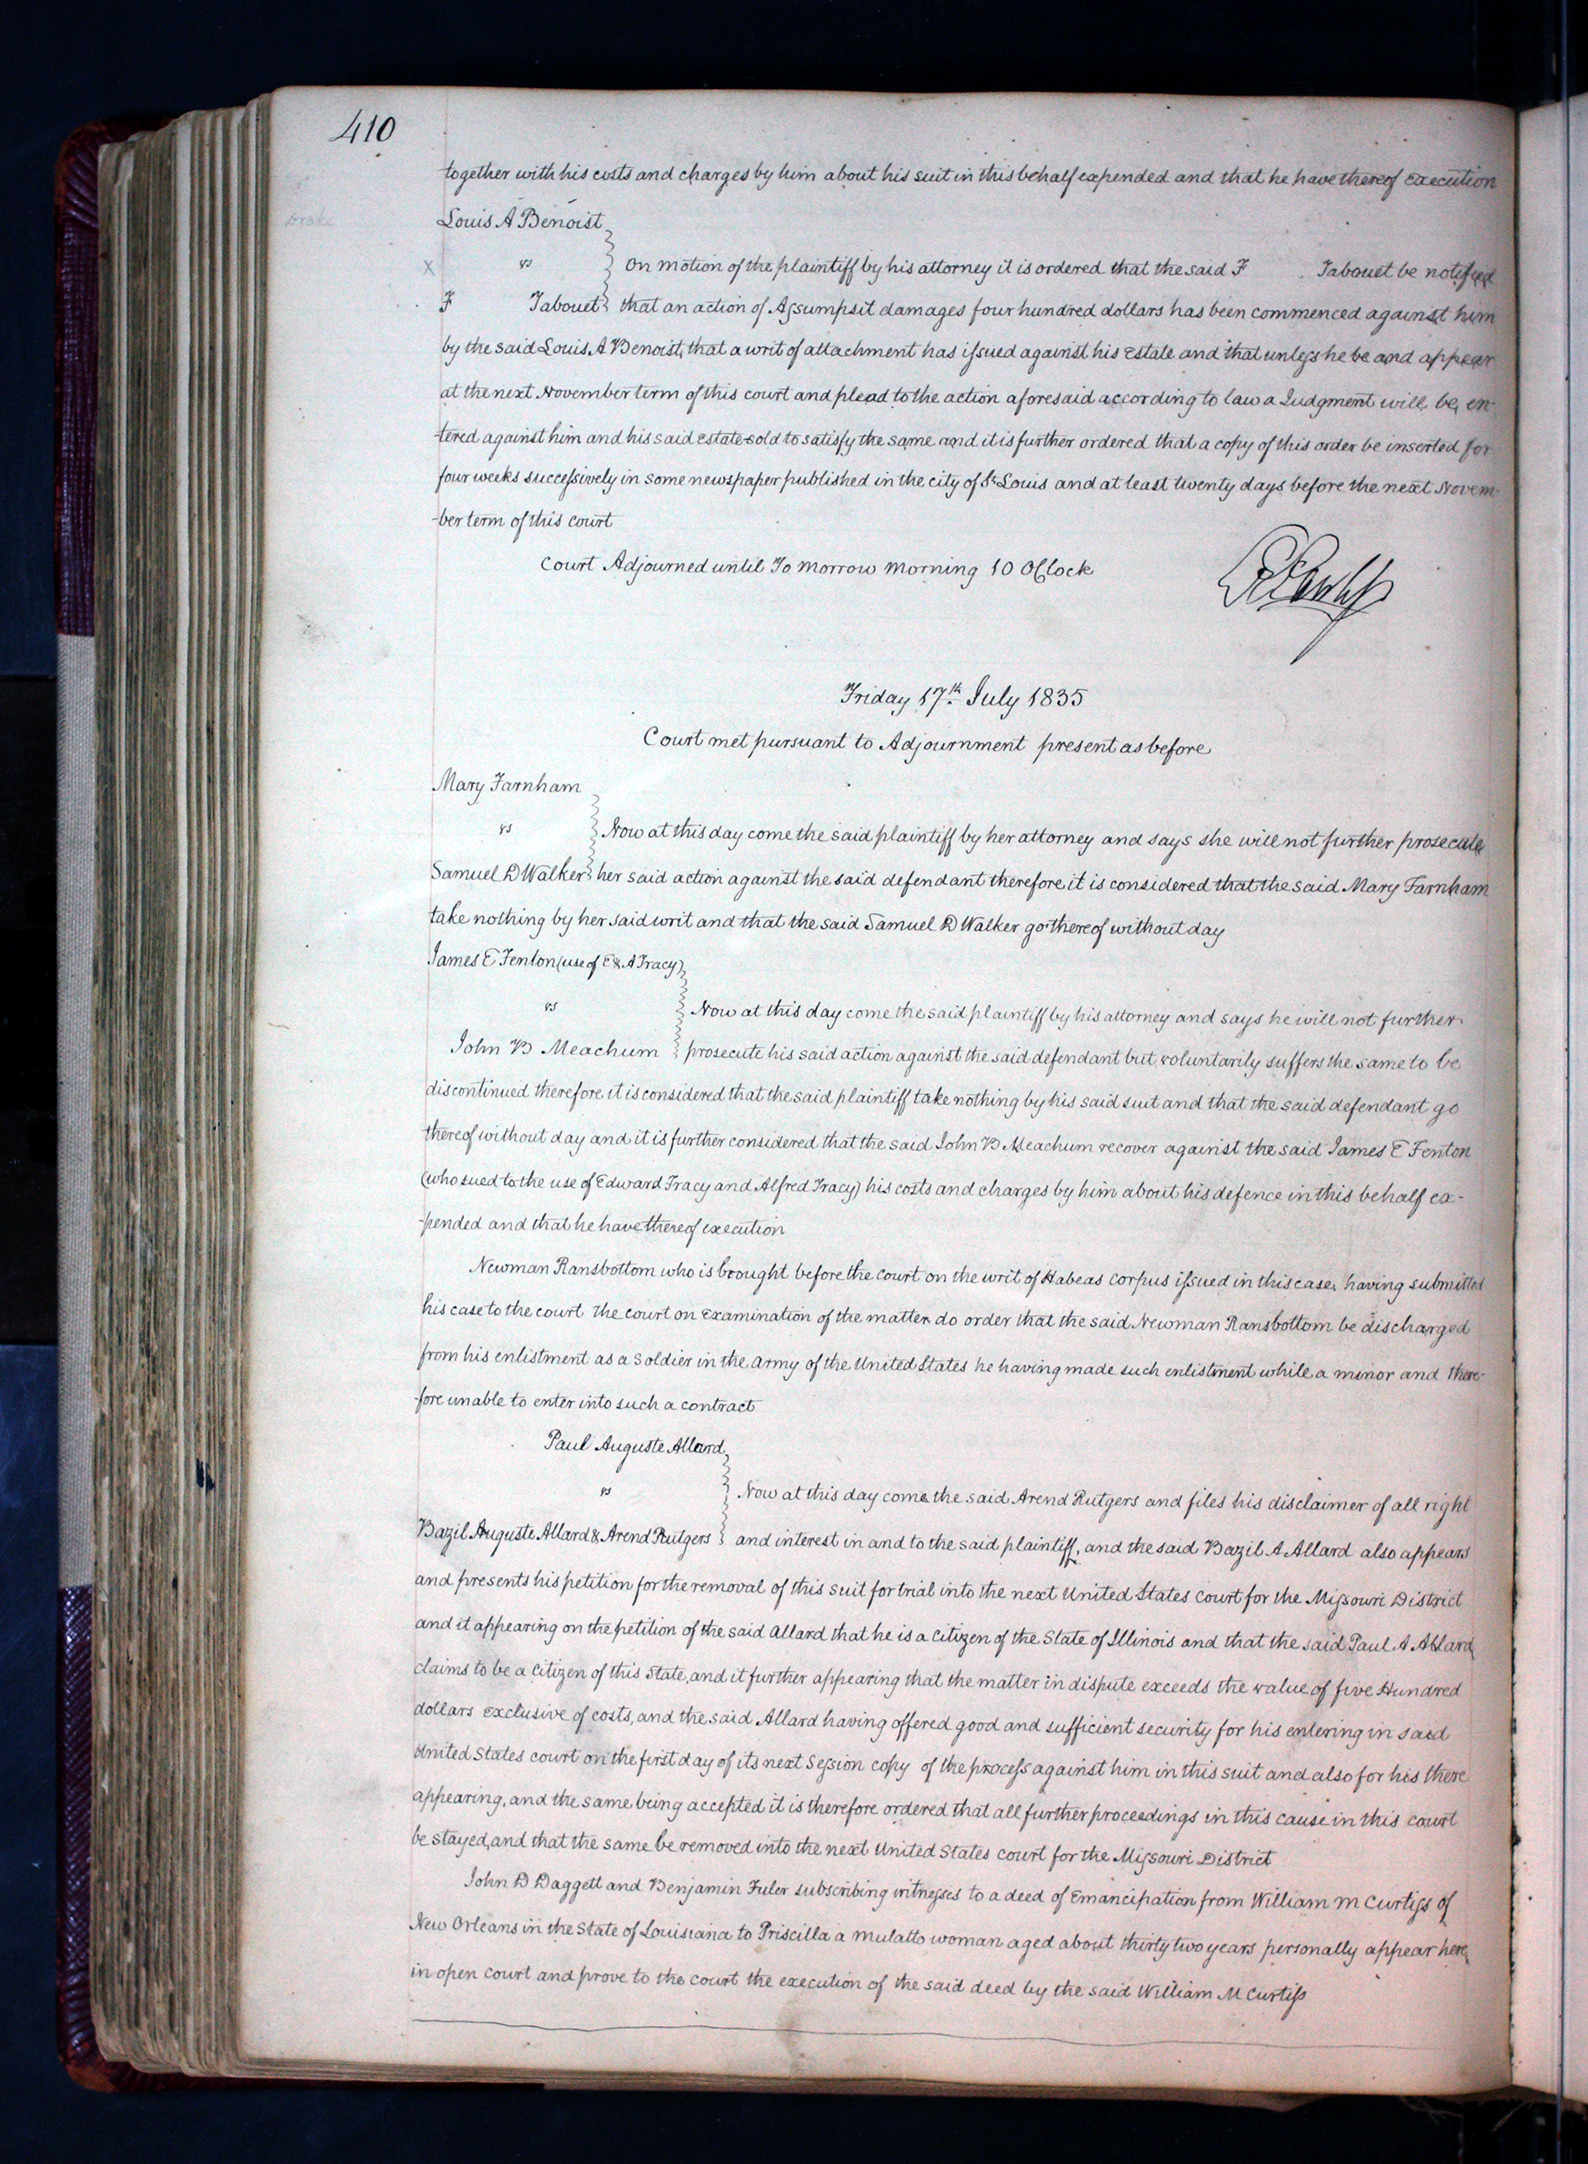 410
together with his costs and charges by him about his suit in this behalf expended and that he have thereof execution
Louis A Benoist
vs
On motion of the plaintiff by his attorney it is ordered that the said F Tabouet be notified
X
F Tabouet that an action of Assumpsit damages four hundred dollars has been commenced against him
by the said Louis A Benoist, that a writ of attachment has issued against his Estate and that unless he be and appear
at the next November term of this court and plead to the action aforesaid according to law a Judgment will be en-
-tered against him and his said estate sold to satisfy the same and it is further ordered that a copy of this order be inserted for
four weeks successively in some newspaper published in the city of St Louis and at least twenty days before the next Novem-
-ber term of this court
Court Adjourned until To morrow morning 10 OClock
Friday 17th July 1835
Court met pursuant to Adjournment present as before
Mary Farnham
vs
Now at this day come the said plaintiff by her attorney and says she will not further prosecute
Samuel D Walker her said action against the said defendant therefore it is considered that the said Mary Farnham
take nothing by her said writ and that the said Samuel D Walker go thereof without day
James E Fenton (use of E & A Tracy)
vs
Now at this day come the said plaintiff by his attorney and says he will not further
John B Meachum prosecute his said action against the said defendant but voluntarily suffers the same to be
discontinued therefore it is considered that the said plaintiff take nothing by his said suit and that the said defendant go
thereof without day and it is further considered that the said John B Meachum recover against the said James E Fenton
(who sued to the use of Edward Tracy and Alfred Tracy) his costs and charges by him about his defence in this behalf ex-
-pended and that he have thereof execution
Newman Ransbottom who is brought before the court on the writ of Habeas corpus issued in this case, having submitted
his case to the court the court on examination of the matter do order that the said Newman Ransbottom be discharged
from his enlistment as a soldier in the army of the United States he having made such enlistment while a minor and there-
-fore unable to enter into such a contract
Paul Auguste Allard
vs
Now at this day come the said Arend Rutgers and files his disclaimer of all right
Bazil Auguste Allard & Arend Rutgers and interest in and to the said plaintiff, and the said Bazil A Allard also appears
and presents his petition for the removal of this suit for trial into the next United States court for the Missouri District
and it appearing on the petition of the said Allard that he is a citizen of the State of Illinois and that the said Paul A Allard
claims to be a citizen of this State, and it further appearing that the matter in dispute exceeds the value of five Hundred
dollars exclusive of costs, and the said Allard having offered good and sufficient security for his entering in said
United States court on the first day of its next Session copy of the process against him in this suit and also for his there
appearing, and the same being accepted it is therefore ordered that all further proceedings in this cause in this court
be stayed, and that the same be removed into the next United States court for the Missouri District
John D Daggett and Benjamin Fuler subscribing witnesses to a deed of Emancipation from William M Curtiss of
New Orleans in the State of Louisiana to Priscilla a mulatto woman aged about thirty two years personally appear here
in open court and prove to the court the execution of the said deed by the said William M Curtiss